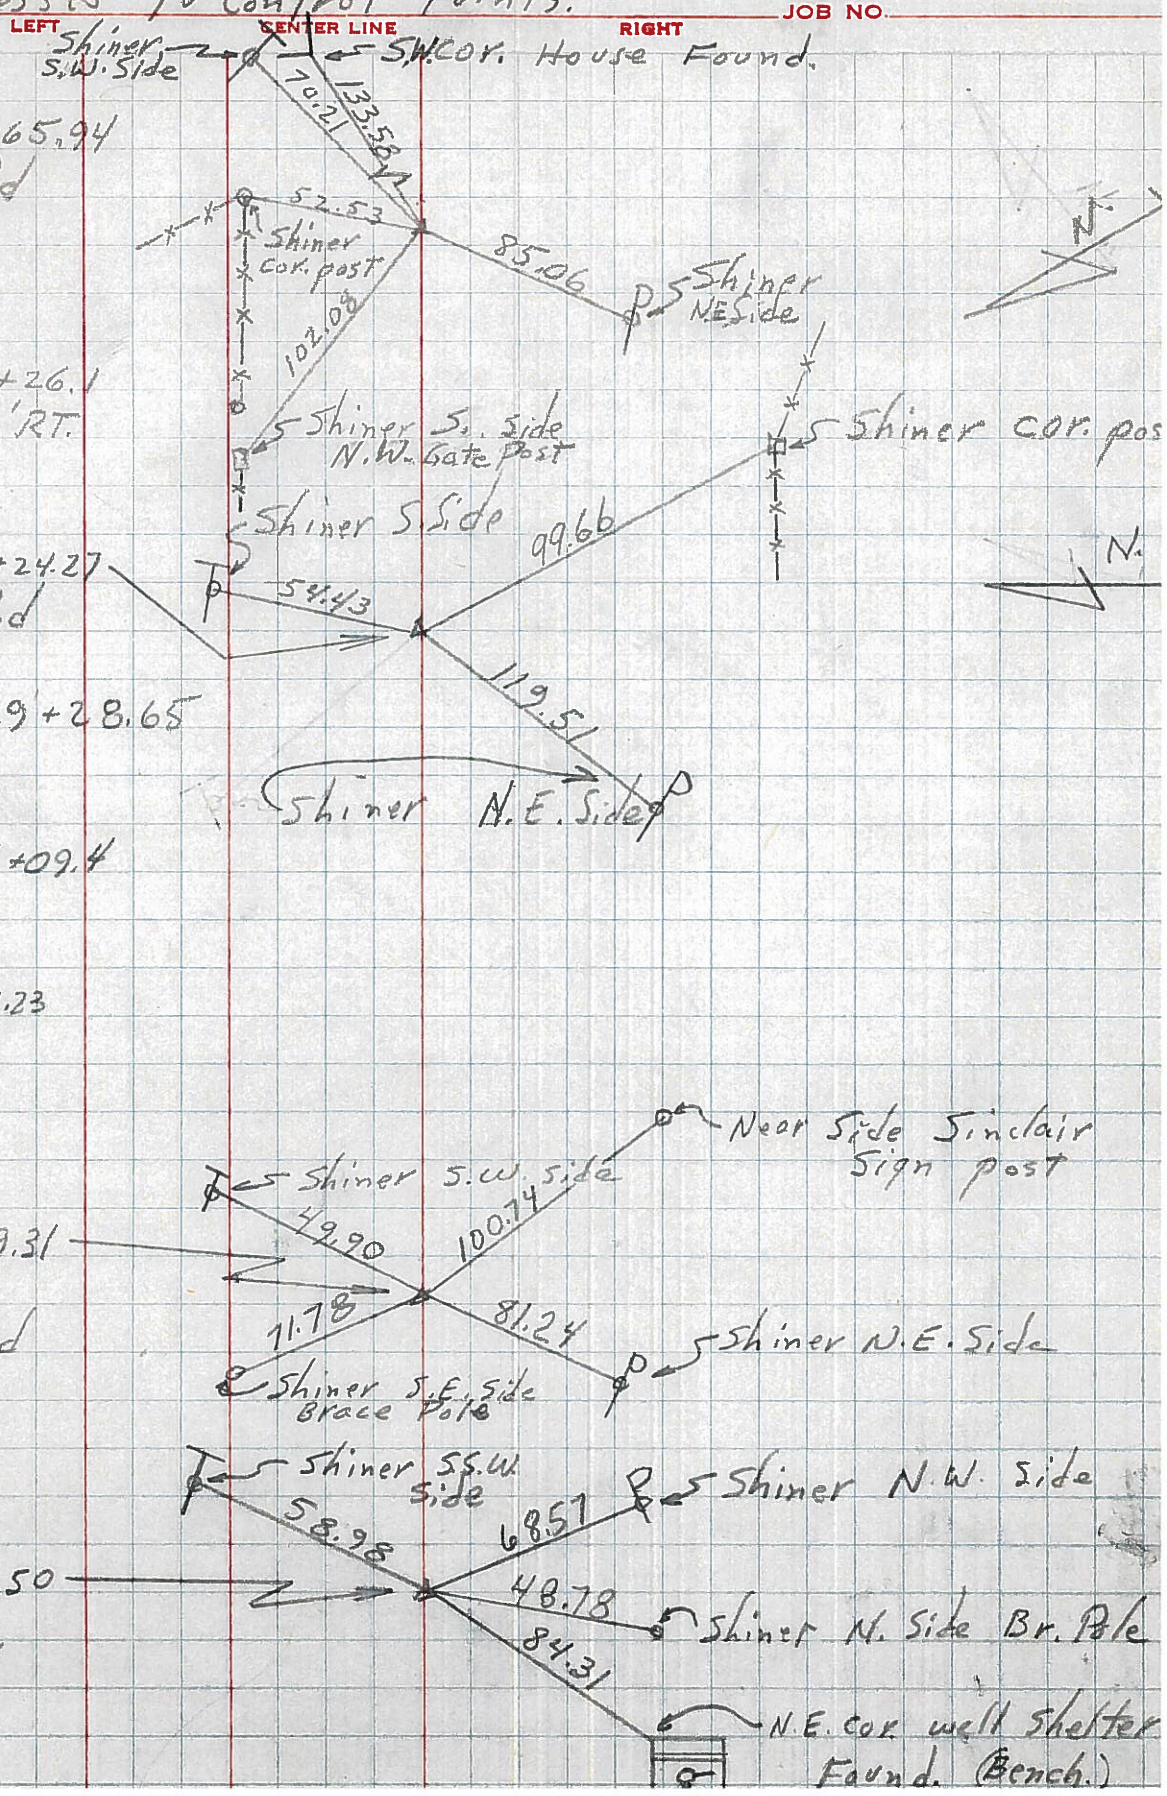 to Control Points.
LEFT CENTER LINE RIGHT JOB NO.
Shiner
S.W. Side
S.W. Cor. House Found.
70.21
133.58
65.94
d
52.53
Shiner
cor. post
85.06
Shiner
N.E Side
N.
102.08
+26.1
'RT.
Shiner S. Side
N.W. Gate Post
Shiner cor. pos
Shiner S. Side
99.66
N.
+24.27
d
54.43
119.51
9+28.65
Shiner N.E. Side
+09.4
.23
Near Side Sinclair
Sign post
Shiner S.W. side
49.90
100.74
9.31
71.78
81.24
d
Shiner N.E. Side
Shiner S.E. Side
Brace Pole
Shiner S.S.W.
Side
Shiner N.W. Side
58.98
68.57
50
48.78
Shiner N. Side Br. Pole
84.31
N.E. cor. well shelter
Found. (Bench.)